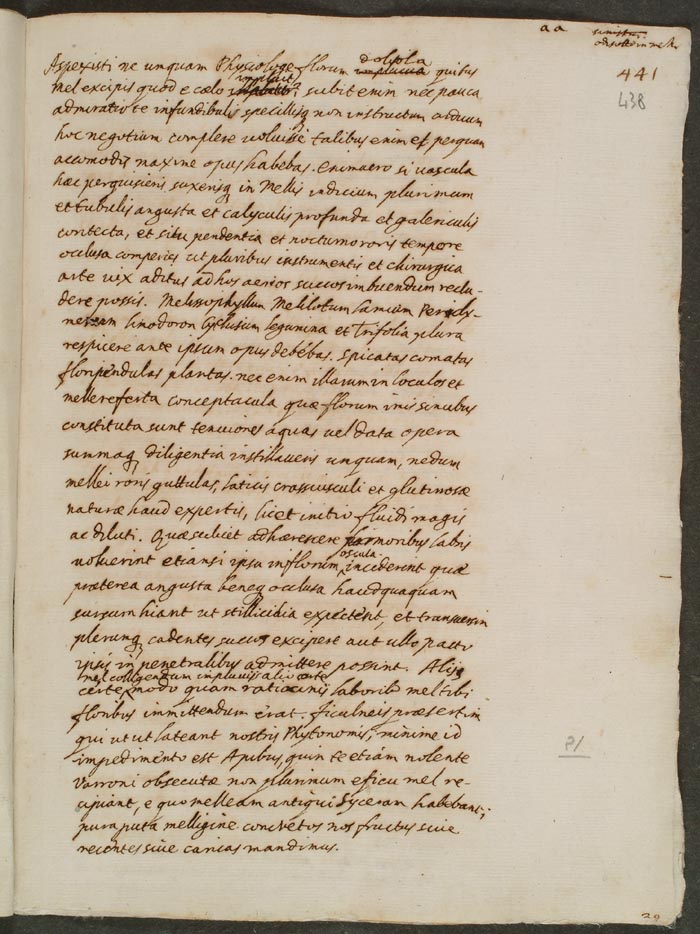 aa
441
438
Aspexisti ne unquam Physiologe florum doliola quibus
mel excipis quod e cælo influit? subit enim nec pauca
admiratio te infundibulis specillisq non instructum arduum
hoc negotium complere voluisse talibus enim et perquam
accomodis maxime opus habebas. Enimvero si vascula
hæc perquisieris suxerisq in Mellis indicium plurimum
et tubulis angusta et calyculis profunda et galericulis
contecta, et situ pendentia et nocturno roris tempore
oclusa comperies ut pluribus instrumentis et chirurgica
arte vix aditus ad hos aerios succos imbuendum reclu-
dere possis. Melissophyllum Melilotum Lamium Pericly-
menum linodoron Cytusum legumina et Trifolia plura
respicere ante ipsum opus debébas. Spicatas comatas
floripéndulas plantas. nec enim illarum in loculos et
mellereferta conceptacula quæ florum imis sinubus
constituta sunt tenuiores aquas vel data opera
summaq diligentia instillaveris unquam, nedum
mellei roris guttulas, laticis crassiusculi et glutinosæ
naturæ haud expertis, licet initio fluidi magis
ac diluti. Quæ scilicet adhærescere primoribus labris
voluerint etiansi ipsa in florum oscula inciderent quæ
præterea angusta beneq oclusa haudquaquam
sursum hiant ut stillicidia expectent, et transversim
plerunq cadentes succos excipere aut ullo pacto
ipsis in penetralibus admittere possint. Alijs
mel colligendum impluviis alio arte
certe modo quam ratiocinijs laborib meltibi
floribus immittendum erat. Ficulneis præsertim
qui ut ut lateant nostris Phytonomis, minime id
impedimento est Apibus, quin te etiam nolente
Varroni obsecutæ non plurimum e ficu mel re-
cipiant, e quo melleam antiqui Syceram habebant;
pura puta melligine concretos nos fructus sive
recentes sive caricas mandimus.
21
29